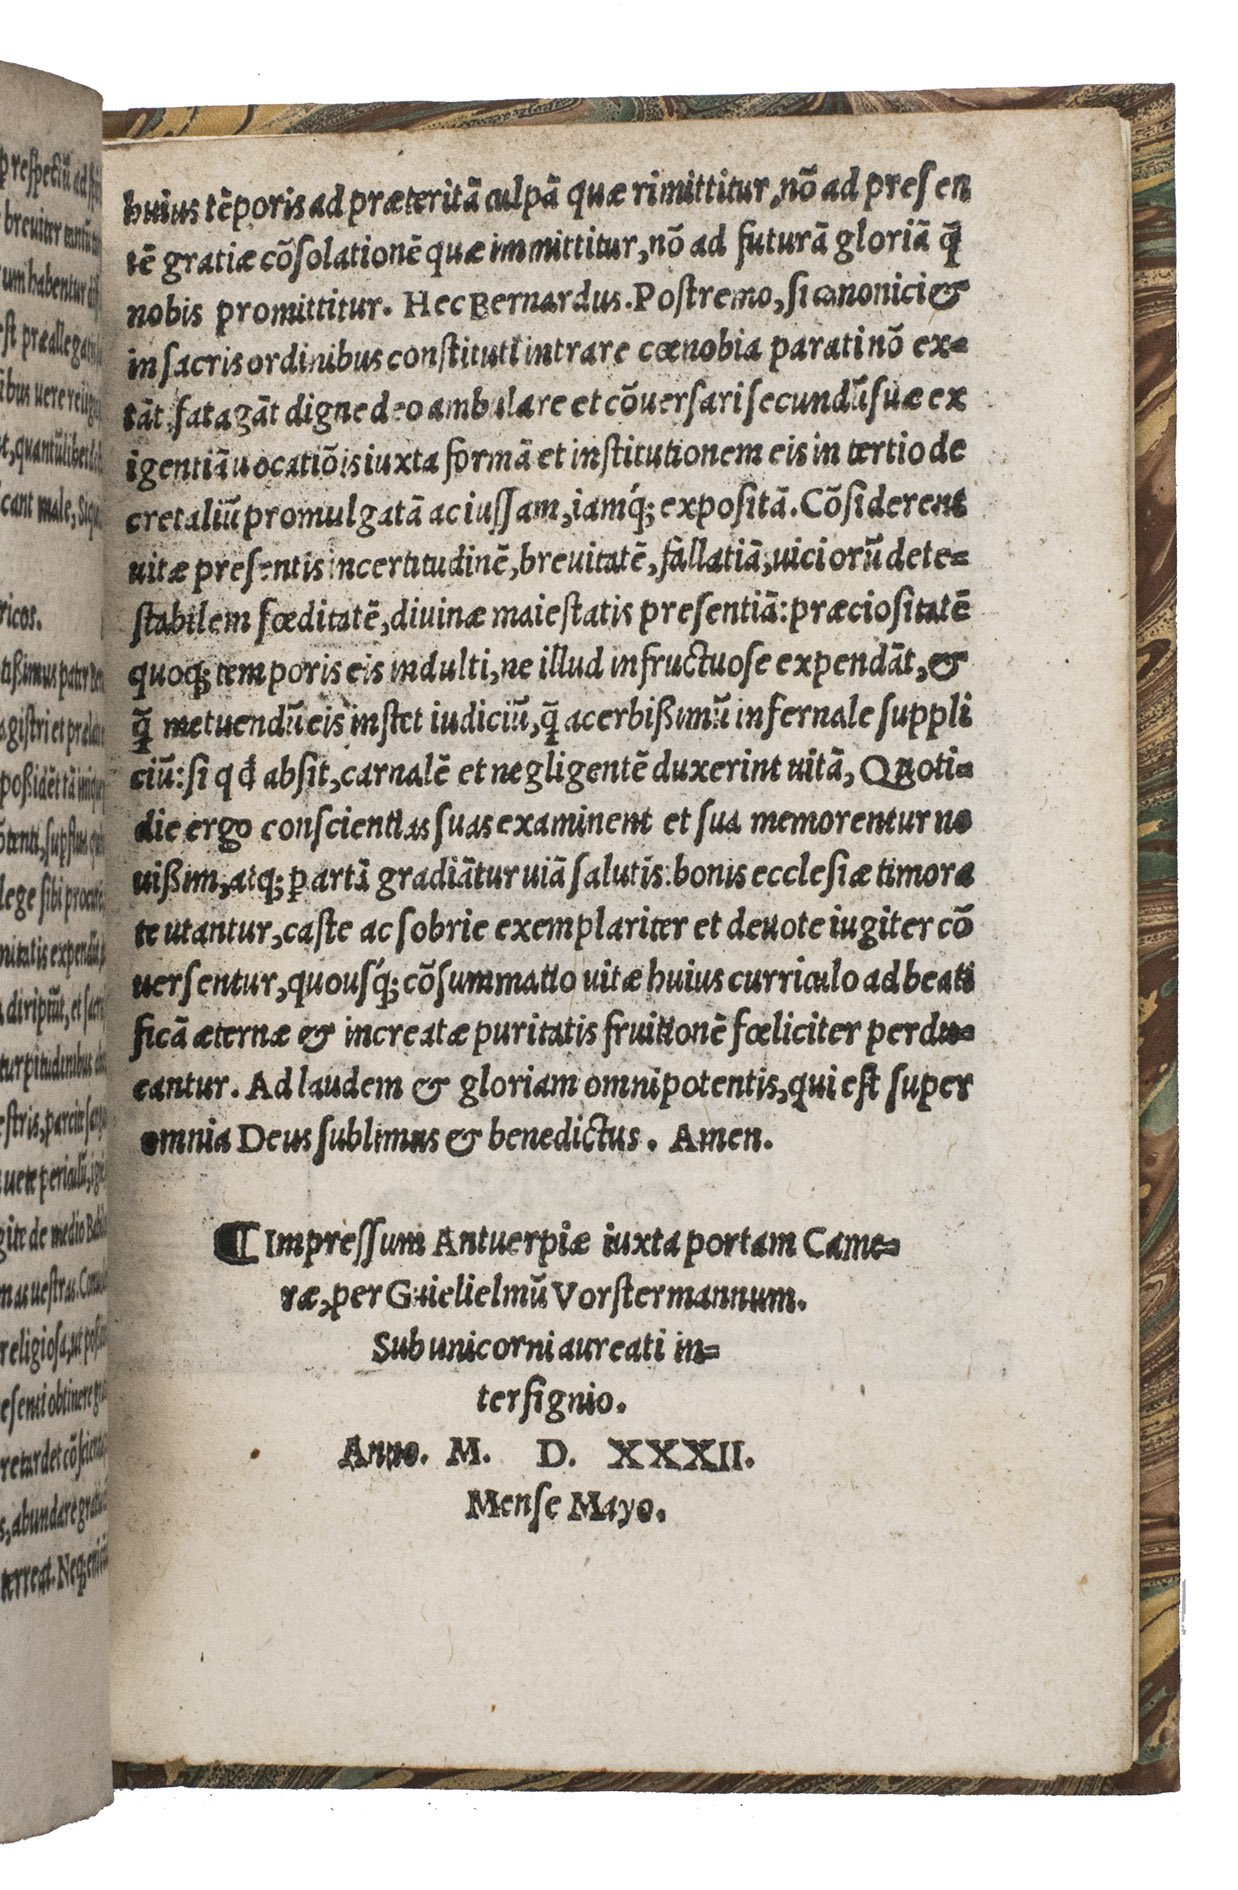 p respectũ ad
breviter
um habentur
est præallega
ibus uere
t, quantũlibet
cant male, Siqu
ricos.
tißimus pater
agistri et prela
poßidẽt tã
lege sibi
nitatis
diripiũt, et
turpitudinibus
estris, parcite
uete periculũ,
gite de medio Ba
mas uestras. Con
religiosa, ut
esenti obtinere
retur det cõscienti
s, abundare
terreat. Neq; eni
huius tẽporis ad præteritã culpã quæ rimittitur, nõ ad presen
tẽ gratiæ cõsolationẽ quæ immittitur, nõ ad futurã gloriã q̃
nobis promittitur. Hec Bernardus. Postremo, si canonici &
in sacris ordinibus constituti intrare cœnobia parati nõ ex=
tãt, satagãt digne deo ambulare et cõuersari secundũ suæ ex
igentiã uocatiõis iuxta formã et institutionem eis in tertio de
cretaliũ promulgatã ac iussam, iamq́; expositã. Cõsiderent
uitæ presentis incertitudinẽ, breuitatẽ, fallatiã, uiciorũ dete=
stabilem fœditatẽ, diuinæ maiestatis presentiã: præciositatẽ
quoq; temporis eis indulti, ne illud infructuose expendãt, &
q̃ metuendũ eis instet iudiciũ, q̃ acerbißimũ infernale suppli
ciũ: si qđ absit, carnalẽ et negligentẽ duxerint uitã, Quoti=
die ergo conscientias suas examinent et sua memorentur no
uißim, atq; ꝑ artã gradiãtur uiã salutis: bonis ecclesiæ timora
te utantur, caste ac sobrie exemplariter et deuote iugiter cõ
uersentur, quousq́; cõsummatio uitæ huius curriculo ad beati
ficã æternæ & increatæ puritatis fruitionẽ fœliciter perdu=
cantur. Ad laudem & gloriam omnipotentis, qui est super
omnia Deus sublimus & benedictus. Amen.
¶ Impressum Antuerpiæ iuxta portam Came=
ræ, per Guielielmũ Vorstermannum.
Sub unicorni aureati in=
tersignio.
Anno. M. D. XXXII.
Mense Mayo.